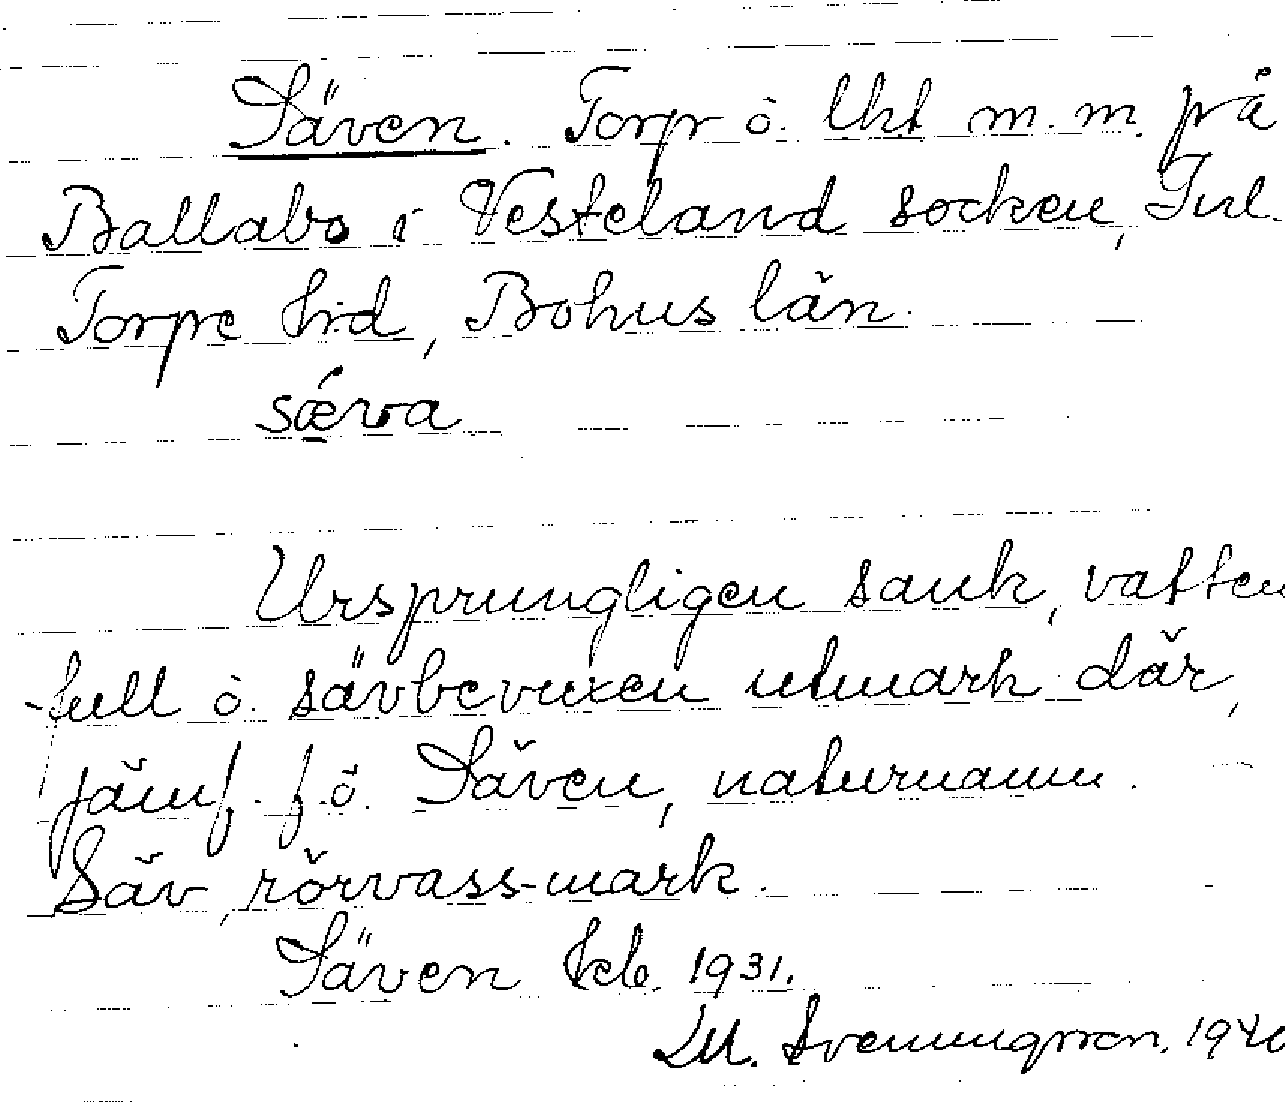 Säven. Torp o. lht m.m. på
Ballabo i Vesteland socken, Inl.
Torpe hrd, Bohus län.
sǽva
Ursprungligen sank, vatten
-full o. sävbevuxen utmark där,
jämf. f.ö. Säven, naturnamn.
Säv, rörvass-mark.
Säven kb. 1931.
M. Svenungsson. 1940